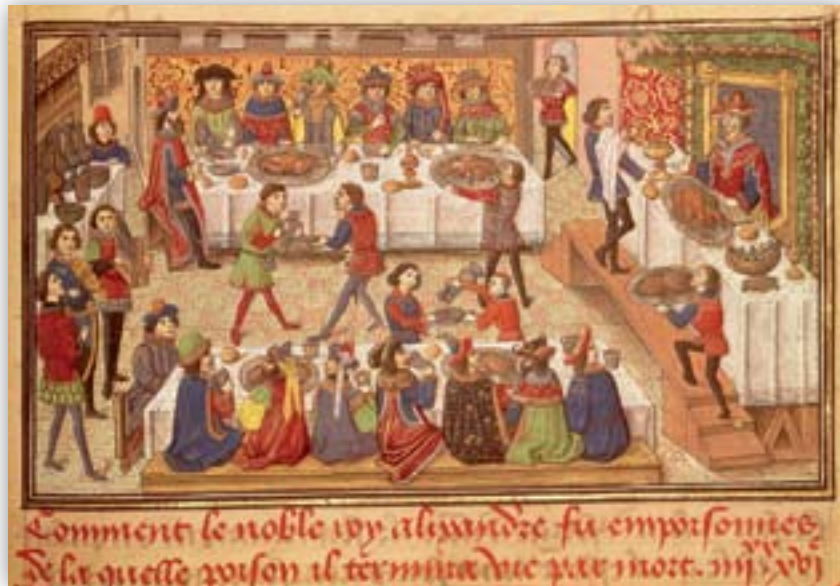 Comment le noble roy alixandre fu empoisonnes
De la quelle poison il termina vie par mort. iiii xx xvi